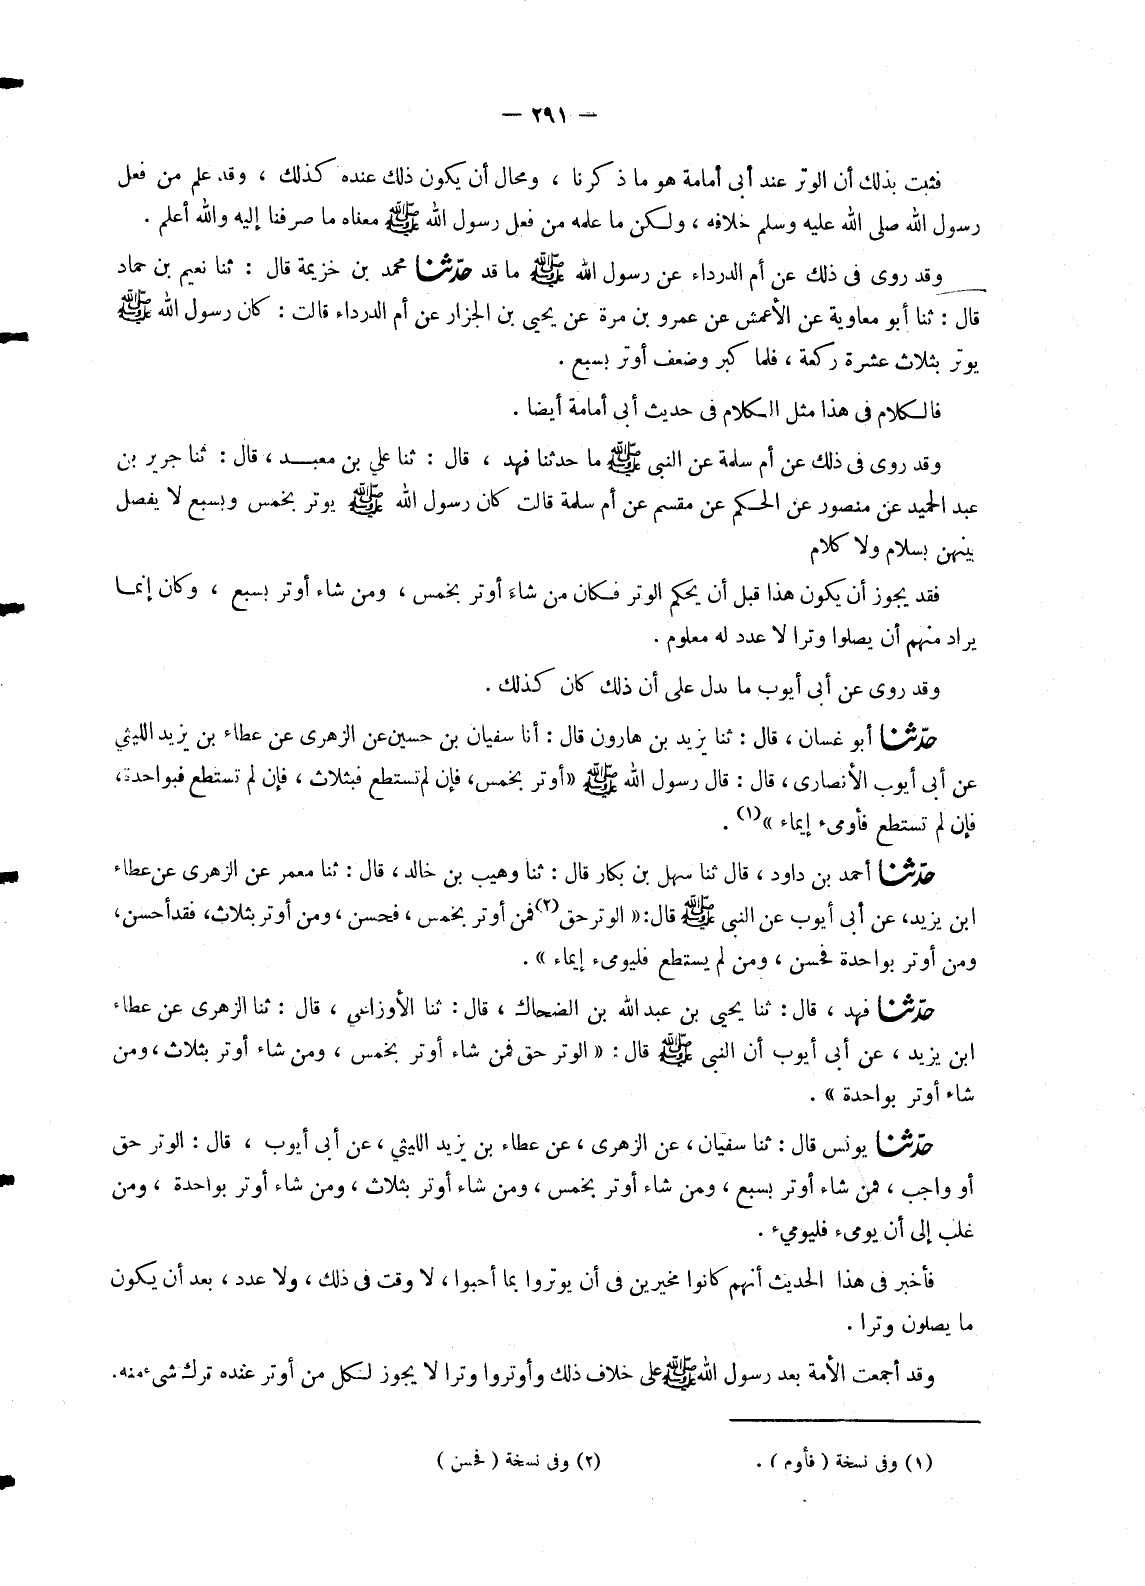 — ٢٩١ —
فثبت بذلك أن الوتر عند أبى أمامة هو ما ذكرنا ، ومحال أن يكون ذلك عنده كذلك ، وقد علم من فعل
رسول الله صلى الله عليه وسلم خلافه ، ولكن ما علمه من فعل رسول الله ﷺ معناه ما صرفنا إليه والله أعلم .
وقد روى فى ذلك عن أم الدرداء عن رسول الله ﷺ ما قد حدّثنا محمد بن خزيمة قال : ثنا نعيم بن حماد
قال : ثنا أبو معاوية عن الأعمش عن عمرو بن مرة عن يحيى بن الجزار عن أم الدرداء قالت : كان رسول الله ﷺ
يوتر بثلاث عشرة ركعة ، فلما كبر وضعف أوتر بسبع .
فالكلام فى هذا مثل الكلام فى حديث أبى أمامة أيضا .
وقد روى فى ذلك عن أم سلمة عن النبى ﷺ ما حدثنا فهد ، قال : ثنا علي بن معبد ، قال : ثنا جرير بن
عبد الحميد عن منصور عن الحكم عن مقسم عن أم سلمة قالت كان رسول الله ﷺ يوتر بخمس وبسبع لا يفصل
بينهن بسلام ولا كلام
فقد يجوز أن يكون هذا قبل أن يحكم الوتر فكان من شاءَ أوتر بخمس ، ومن شاء أوتر بسبع ، وكان إنما
يراد منهم أن يصلوا وترا لا عدد له معلوم .
وقد روى عن أبى أيوب ما يدل على أن ذلك كان كذلك .
حدّثنا أبو غسان ، قال : ثنا يزيد بن هارون قال : أنا سفيان بن حسين عن الزهرى عن عطاء بن يزيد الليثي
عن أبى أيوب الأنصارى ، قال : قال رسول الله ﷺ «أوتر بخمس، فإن لم تستطع فبثلاث ، فإن لم تستطع فبواحدة،
فإن لم تستطع فأومىء إيماء »(١) .
حدّثنا أحمد بن داود ، قال ثنا سهل بن بكار قال : ثنا وهيب بن خالد ، قال : ثنا معمر عن الزهرى عن عطاء
ابن يزيد، عن أبى أيوب عن النبى ﷺ قال: « الوتر حق(٢) فمن أوتر بخمس ، فحسن ، ومن أوتر بثلاث، فقد أحسن،
ومن أوتر بواحدة فحسن ، ومن لم يستطع فليومىء إيماء » .
حدّثنا فهد ، قال : ثنا يحيى بن عبد الله بن الضحاك ، قال : ثنا الأوزاعي ، قال : ثنا الزهرى عن عطاء
ابن يزيد ، عن أبى أيوب أن النبى ﷺ قال : « الوتر حق فمن شاء أوتر بخمس ، ومن شاء أوتر بثلاث ، ومن
شاء أوتر بواحدة » .
حدّثنا يونس قال : ثنا سفيان ، عن الزهرى ، عن عطاء بن يزيد الليثي ، عن أبى أيوب ، قال : الوتر حق
أو واجب ، فمن شاء أوتر بسبع ، ومن شاء أوتر بخمس ، ومن شاء أوتر بثلاث ، ومن شاء أوتر بواحدة ، ومن
غلب إلى أن يومىء فليوميء .
فأخبر فى هذا الحديث أنهم كانوا مخيرين فى أن يوتروا بما أحبوا ، لا وقت فى ذلك ، ولا عدد ، بعد أن يكون
ما يصلون وترا .
وقد أجمعت الأمة بعد رسول الله ﷺ على خلاف ذلك وأوتروا وترا لا يجوز لكل من أوتر عنده ترك شىء منه.
(١) وفى نسخة ( فأوم ) .
(٢) وفى نسخة ( فحسن )